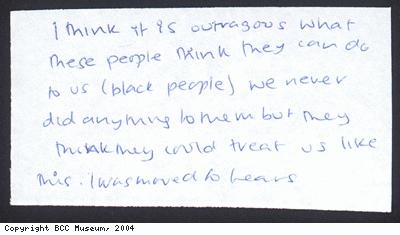 i think it is outragous what
these people think they can do
to us (black people) we never
did anything to them but they
think they could treat us like
this. I was moved to tears
Copyright BCC Museum, 2004